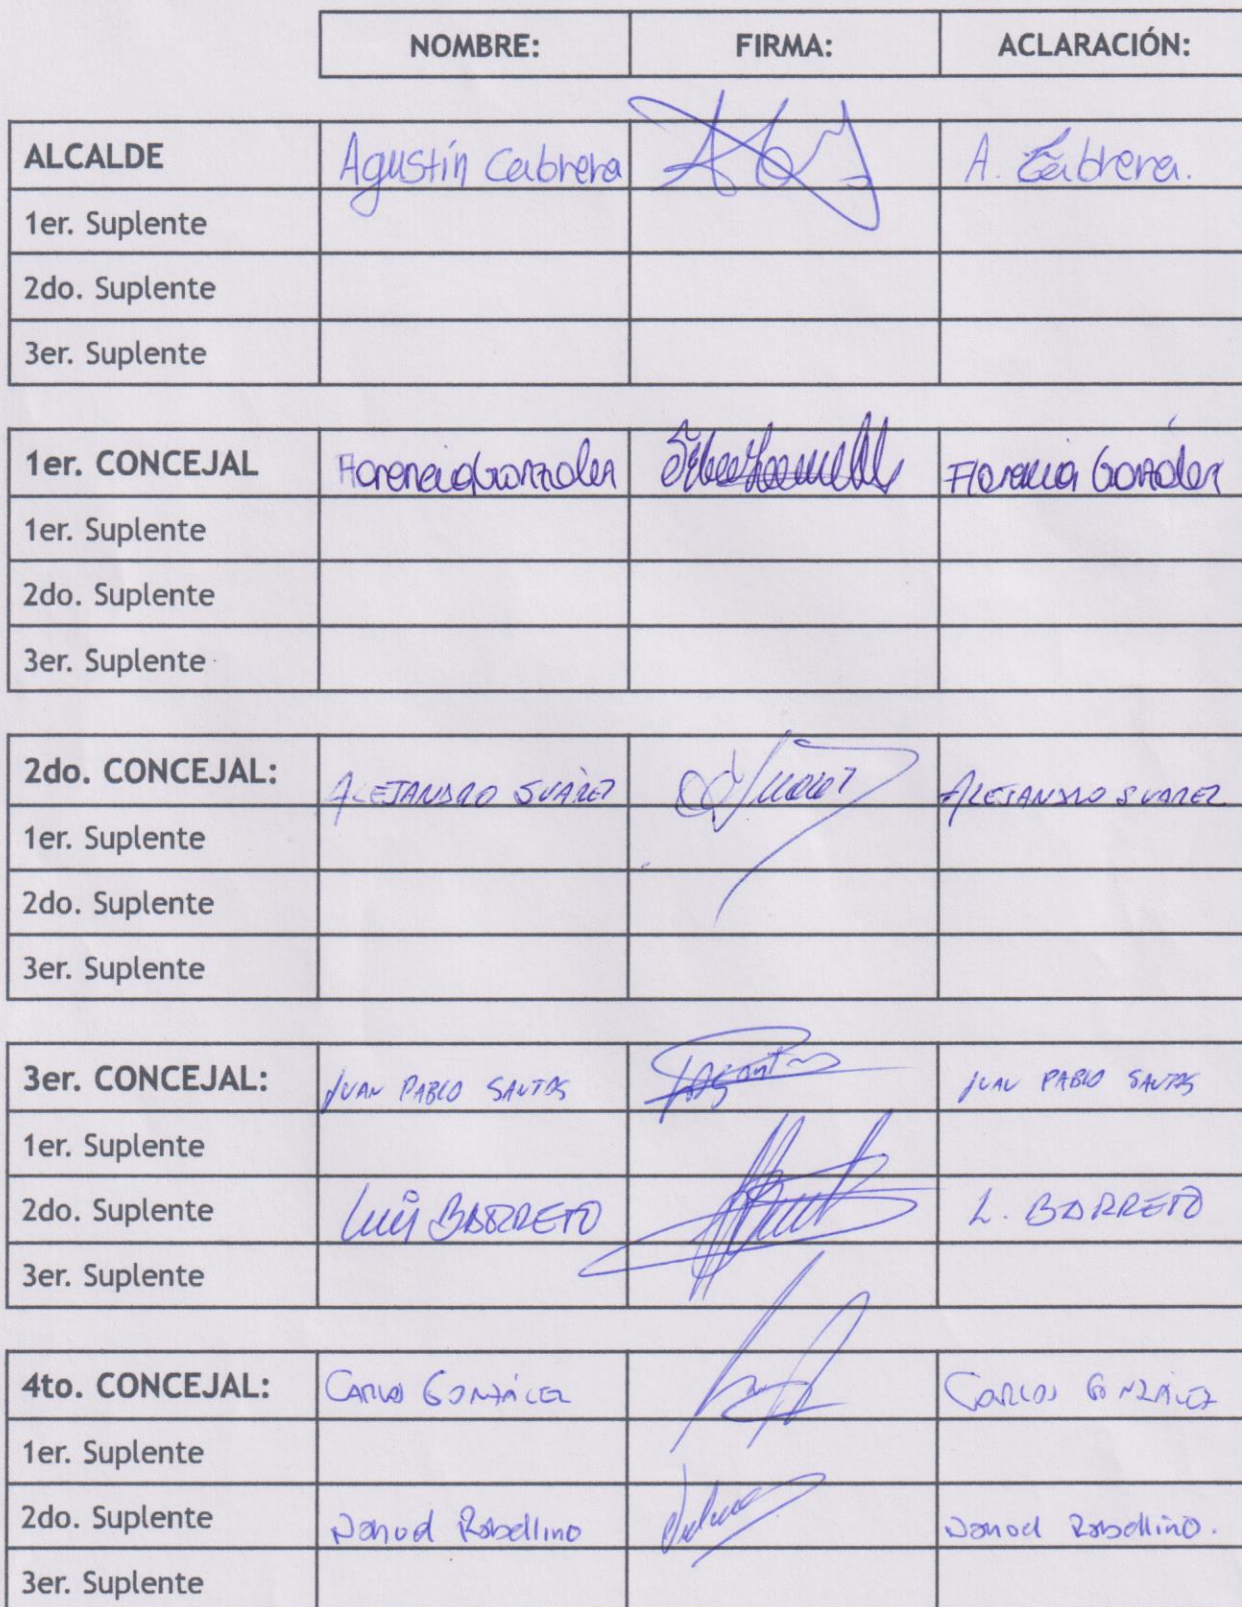 NOMBRE: FIRMA: ACLARACIÓN:
ALCALDE Agustín Cabrera A. Cabrera.
1er. Suplente
2do. Suplente
3er. Suplente
1er. CONCEJAL Florencia González Florencia González
1er. Suplente
2do. Suplente
3er. Suplente
2do. CONCEJAL: ALEJANDRO SUÁREZ ALEJANDRO SUAREZ
1er. Suplente
2do. Suplente
3er. Suplente
3er. CONCEJAL: JUAN PABLO SANTOS JUAN PABLO SANTOS
1er. Suplente
2do. Suplente Luis BARRETO L. BARRETO
3er. Suplente
4to. CONCEJAL: CARLOS GONZÁLEZ CARLOS GONZÁLEZ
1er. Suplente
2do. Suplente Robellino Robellino.
3er. Suplente